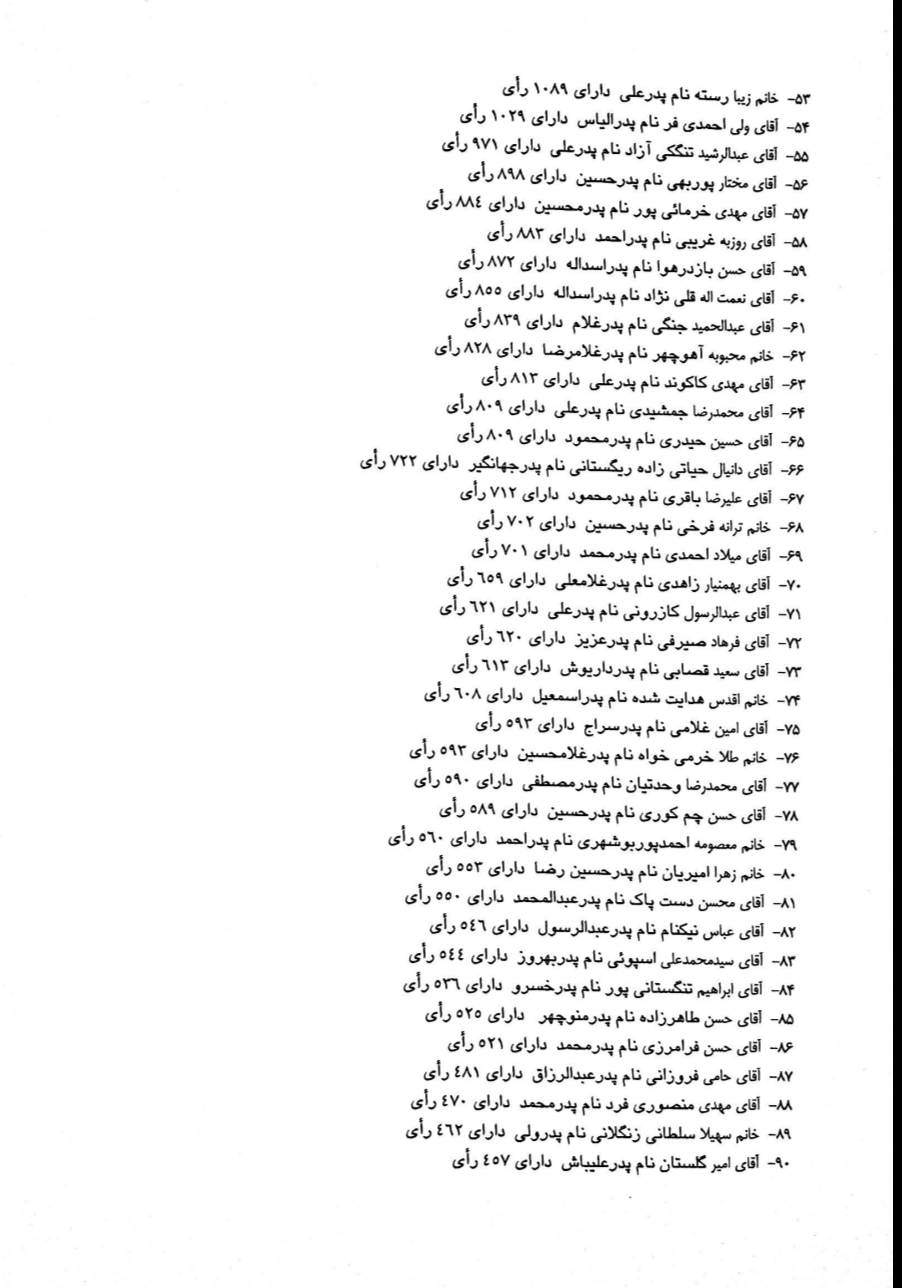 ۵۳- خانم زیبا رسته نام پدرعلی دارای ۱۰۸۹ رأی
۵۴- آقای ولی احمدی فر نام پدرالیاس دارای ۱۰۲۹ رأی
۵۵- آقای عبدالرشید تنگکی آزاد نام پدرعلی دارای ۹۷۱ رأی
۵۶- آقای مختار پوربهی نام پدرحسین دارای ۸۹۸ رأی
۵۷- آقای مهدی خرمائی پور نام پدرمحسین دارای ۸۸٤ رأی
۵۸- آقای روزبه غریبی نام پدراحمد دارای ۸۸۳ رأی
۵۹- آقای حسن بازدرهوا نام پدراسداله دارای ۸۷۲ رأی
۶۰- آقای نعمت اله قلی نژاد نام پدراسداله دارای ۸۵۵ رأی
۶۱- آقای عبدالحمید جنگی نام پدرغلام دارای ۸۳۹ رأی
۶۲- خانم محبوبه آهوچهر نام پدرغلامرضا دارای ۸۲۸ رأی
۶۳- آقای مهدی کاکوند نام پدرعلی دارای ۸۱۳ رأی
۶۴- آقای محمدرضا جمشیدی نام پدرعلی دارای ۸۰۹ رأی
۶۵- آقای حسین حیدری نام پدرمحمود دارای ۸۰۹ رأی
۶۶- آقای دانیال حیاتی زاده ریگستانی نام پدرجهانگیر دارای ۷۲۲ رأی
۶۷- آقای علیرضا باقری نام پدرمحمود دارای ۷۱۲ رأی
۶۸- خانم ترانه فرخی نام پدرحسین دارای ۷۰۲ رأی
۶۹- آقای میلاد احمدی نام پدرمحمد دارای ۷۰۱ رأی
۷۰- آقای بهمنیار زاهدی نام پدرغلامعلی دارای ٦٥۹ رأی
۷۱- آقای عبدالرسول کازرونی نام پدرعلی دارای ٦۲۱ رأی
۷۲- آقای فرهاد صیرفی نام پدرعزیز دارای ٦۲۰ رأی
۷۳- آقای سعید قصابی نام پدرداریوش دارای ٦۱۳ رأی
۷۴- خانم اقدس هدایت شده نام پدراسمعیل دارای ٦۰۸ رأی
۷۵- آقای امین غلامی نام پدرسراج دارای ٥۹۳ رأی
۷۶- خانم طلا خرمی خواه نام پدرغلامحسین دارای ٥۹۳ رأی
۷۷- آقای محمدرضا وحدتیان نام پدرمصطفی دارای ٥۹۰ رأی
۷۸- آقای حسن چم کوری نام پدرحسین دارای ٥۸۹ رأی
۷۹- خانم معصومه احمدپوربوشهری نام پدراحمد دارای ٥٦۰ رأی
۸۰- خانم زهرا امیریان نام پدرحسین رضا دارای ٥٥۳ رأی
۸۱- آقای محسن دست پاک نام پدرعبدالمحمد دارای ٥٥۰ رأی
۸۲- آقای عباس نیکنام نام پدرعبدالرسول دارای ٥٤٦ رأی
۸۳- آقای سیدمحمدعلی اسپوئی نام پدربهروز دارای ٥٤٤ رأی
۸۴- آقای ابراهیم تنگستانی پور نام پدرخسرو دارای ٥۳٦ رأی
۸۵- آقای حسن طاهرزاده نام پدرمنوچهر دارای ٥۲٥ رأی
۸۶- آقای حسن فرامرزی نام پدرمحمد دارای ٥۲۱ رأی
۸۷- آقای حامی فروزانی نام پدرعبدالرزاق دارای ٤۸۱ رأی
۸۸- آقای مهدی منصوری فرد نام پدرمحمد دارای ٤۷۰ رأی
۸۹- خانم سهیلا سلطانی زنگلانی نام پدرولی دارای ٤٦۲ رأی
۹۰- آقای امیر گلستان نام پدرعلیباش دارای ٤٥۷ رأی